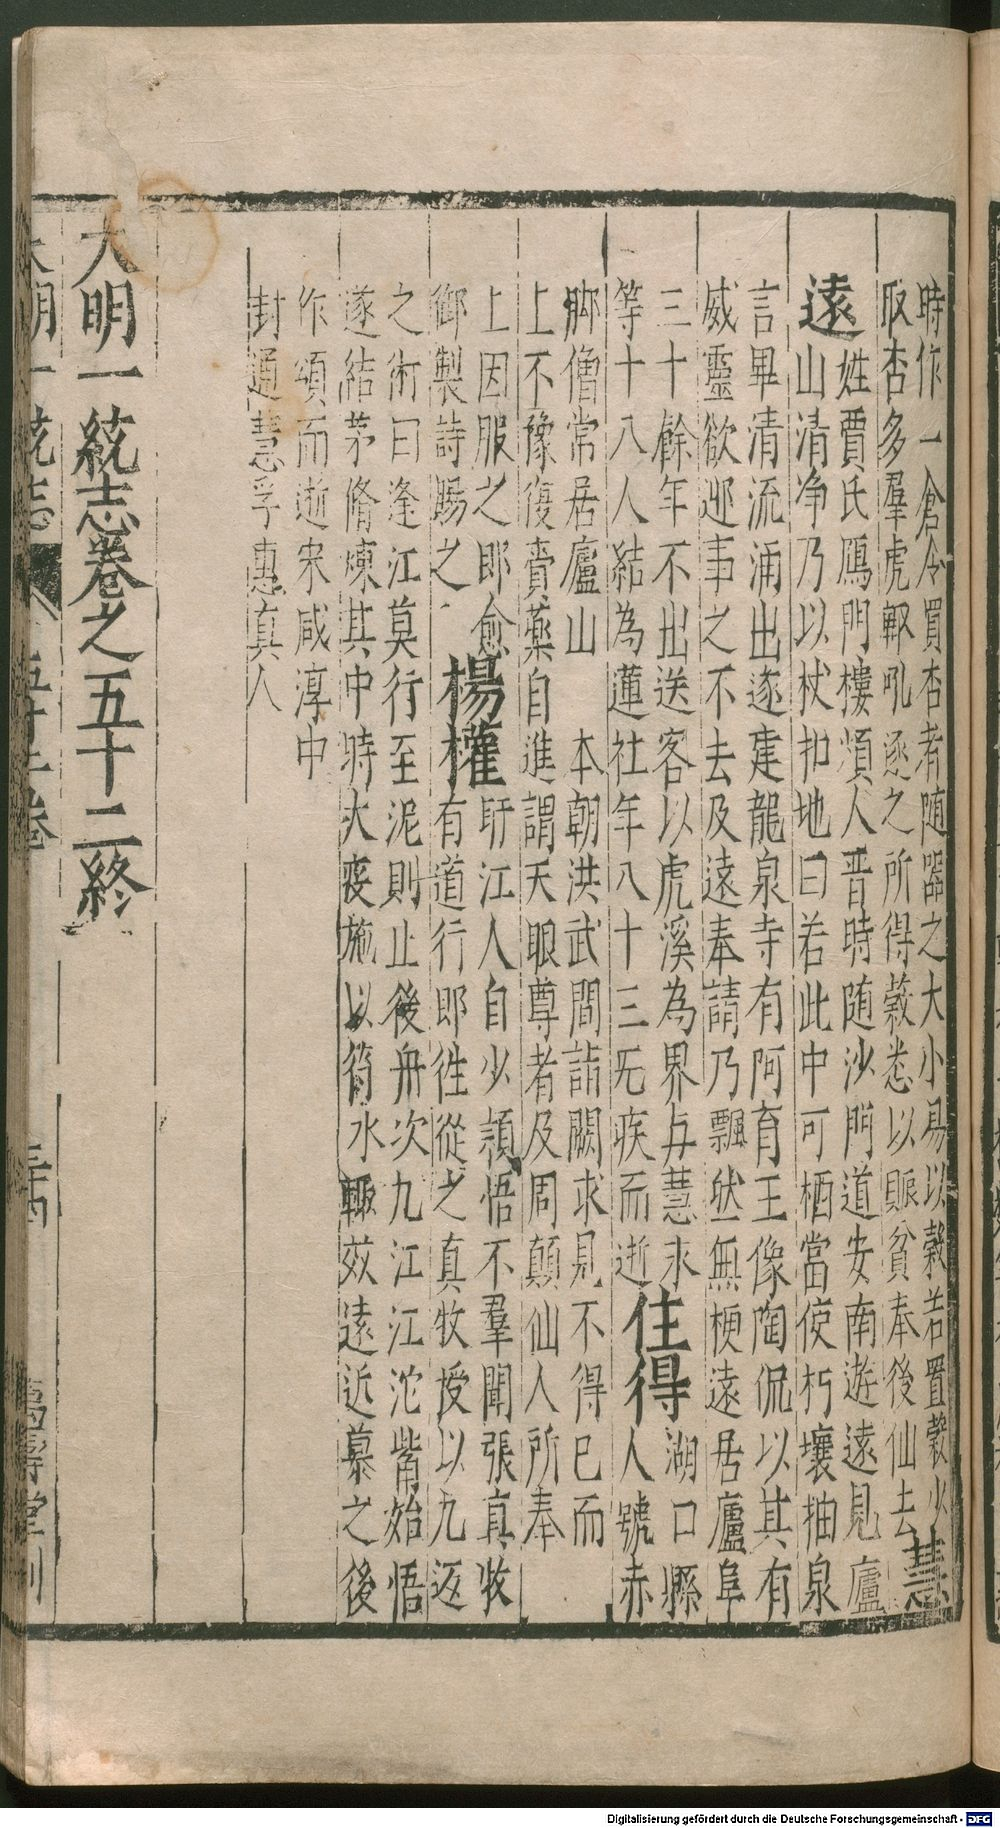 時作一倉令買杏者随器之大小易以穀若置穀少
取杏多羣虎輙吼逐之所得穀悉以賑貧奉後仙去慧
遠
姓賈氏鴈門樓煩人晋時随沙門道安南遊遠見廬
山清净乃以杖扣地曰若此中可栖當使朽壤抽泉
言畢清流涌出遂建龍泉寺有阿育王像陶侃以其有
威靈欲迎事之不去及遠奉請乃飄然無梗遠居廬阜
三十餘年不出送客以虎溪為界与慧永
等十八人結為蓮社年八十三无疾而逝
住得
湖口縣
人號赤
脚僧常居廬山 本朝洪武間詣闕求見不得已而
上不豫復賫藥自進謂天眼尊者及周顛仙人所奉
上因服之即愈
御製詩賜之
楊權
盱江人自少頴悟不羣聞張真牧
有道行即徃從之真牧授以九返
之術曰逢江莫行至泥則止後舟次九江江沱觜始悟
遂結茅脩煉其中時大疫施以符水輙效遠近慕之後
作頌而逝宋咸淳中
封通慧孚惠真人
大明一統志卷之五十二終
大明一統志 五十二卷 三十四 萬壽堂刊
Digitalisierung gefördert durch die Deutsche Forschungsgemeinschaft - DFG